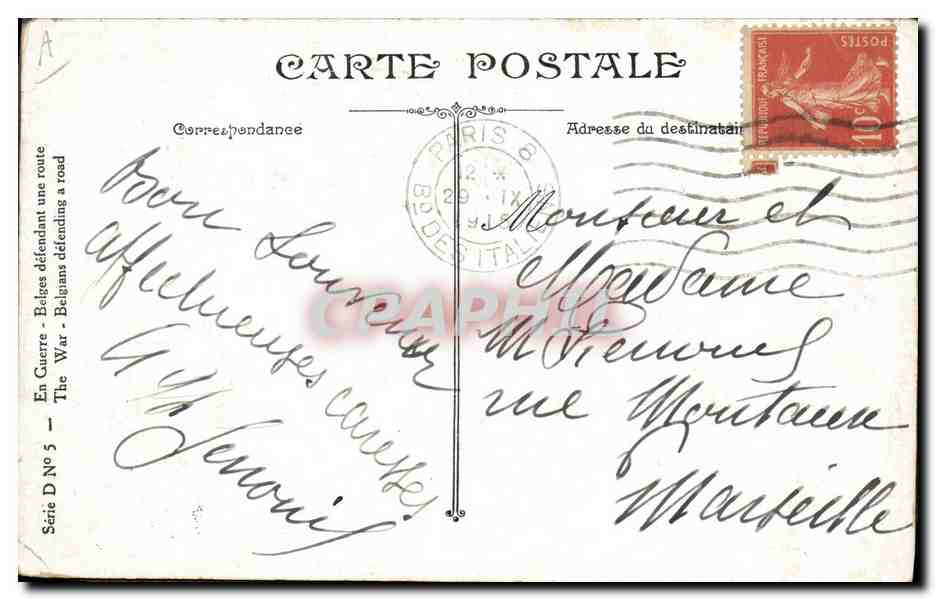 A
CARTE POSTALE
Correspondance
Adresse du destinatai
RÉPUBLIQUE FRANÇAISE
POSTES
10c
PARIS 8
12
29 IX
BD DES ITALI
Série D No 5 — En Guerre - Belges défendant une route
The War - Belgians défending a road
Bon Souvenir
affectueuses caresses
Monsieur et
Madame
M
rue
Marseille
CRAPHIL